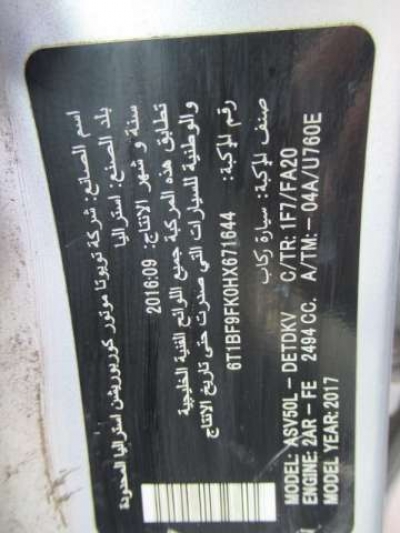 اسم الصانع: شركة تويوتا موتور كوربوريشن استراليا المحدودة
بلد الصنع: استراليا
سنة و شهر الانتاج: 2016:09
تطابق هذه المركبة جميع اللوائح الفنية الخليجية
والوطنية للسيارات التي صدرت حتى تاريخ الانتاج
رقم المركبة: 6T1BF9FK0HX671644
صنف المركبة: سيارة ركاب
MODEL: ASV50L - DETDKV C/TR: 1F7/FA20
ENGINE: 2AR - FE 2494 CC. A/TM: - 04A/U760E
MODEL YEAR: 2017